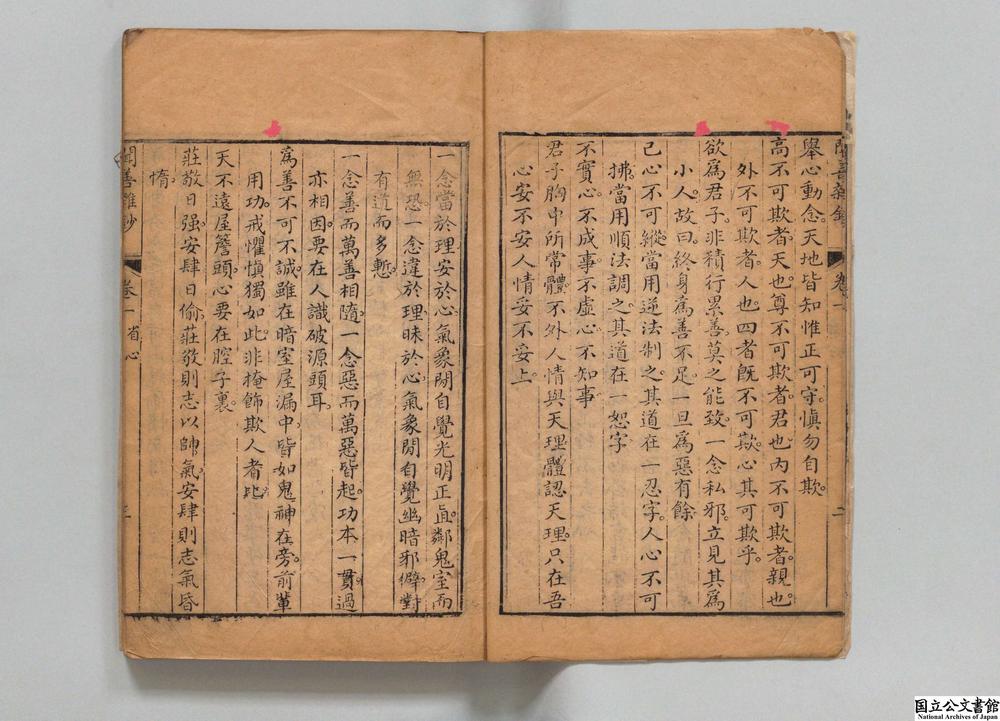 聞善雜鈔 卷一 二
舉心動念。天地皆知惟正可守。愼勿自欺。
高不可欺者。天也。尊不可欺者。君也。內不可欺者。親也。
外不可欺者。人也。四者旣不可欺。心其可欺乎。
欲爲君子。非積行累善。莫之能致。一念私邪。立見其爲
小人。故曰。終身爲善不足。一旦爲惡有餘
己心不可縱。當用逆法制之。其道在一忍字。人心不可
拂。當用順法調之。其道在一恕字
不實心。不成事。不虛心。不知事
君子胸中所常體。不外人情與天理。體認天理。只在吾
心安不安。人情妥不妥上。
一念當於理。安於心。氣象閒自覺光明正直。鄰鬼室而
無恐。一念違於理。昧於心。氣象閒自覺幽暗邪僻。對
有道而多慙。
一念善而萬善相隨。一念惡而萬惡皆起。功本一貫。過
亦相因。要在人識破源頭耳。
爲善不可不誠。雖在暗室屋漏中。皆如鬼神在旁。前輩
用功。戒懼愼獨如此。非掩飾欺人者比。
天不遠屋簷頭。心要在腔子裏。
莊敬日强。安肆日偷。莊敬則志以帥氣。安肆則志氣昏
惰。
聞善雜鈔 卷一 省心 三
国立公文書館
National Archives of Japan